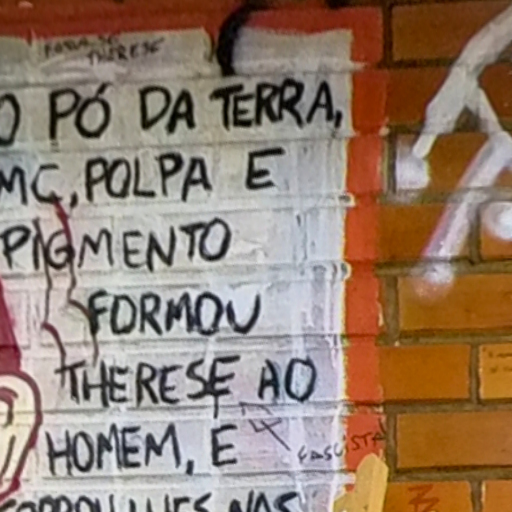 THERESE
O PÓ DA TERRA,
MC, POLPA E
PIGMENTO
FORMOU
THERESE AO
HOMEM, E
FASCISTA